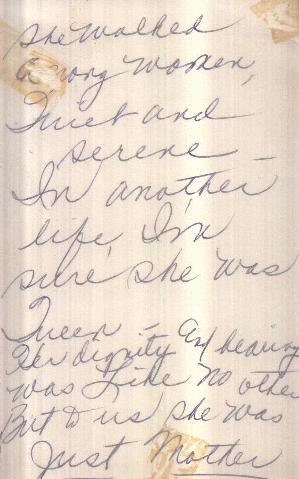 she walked
Among women,
Quiet and
serene –
In another
life, I'm
sure, she was
Queen – And
Her dignity bearing
was Like no other
But to us she was
Just Mother